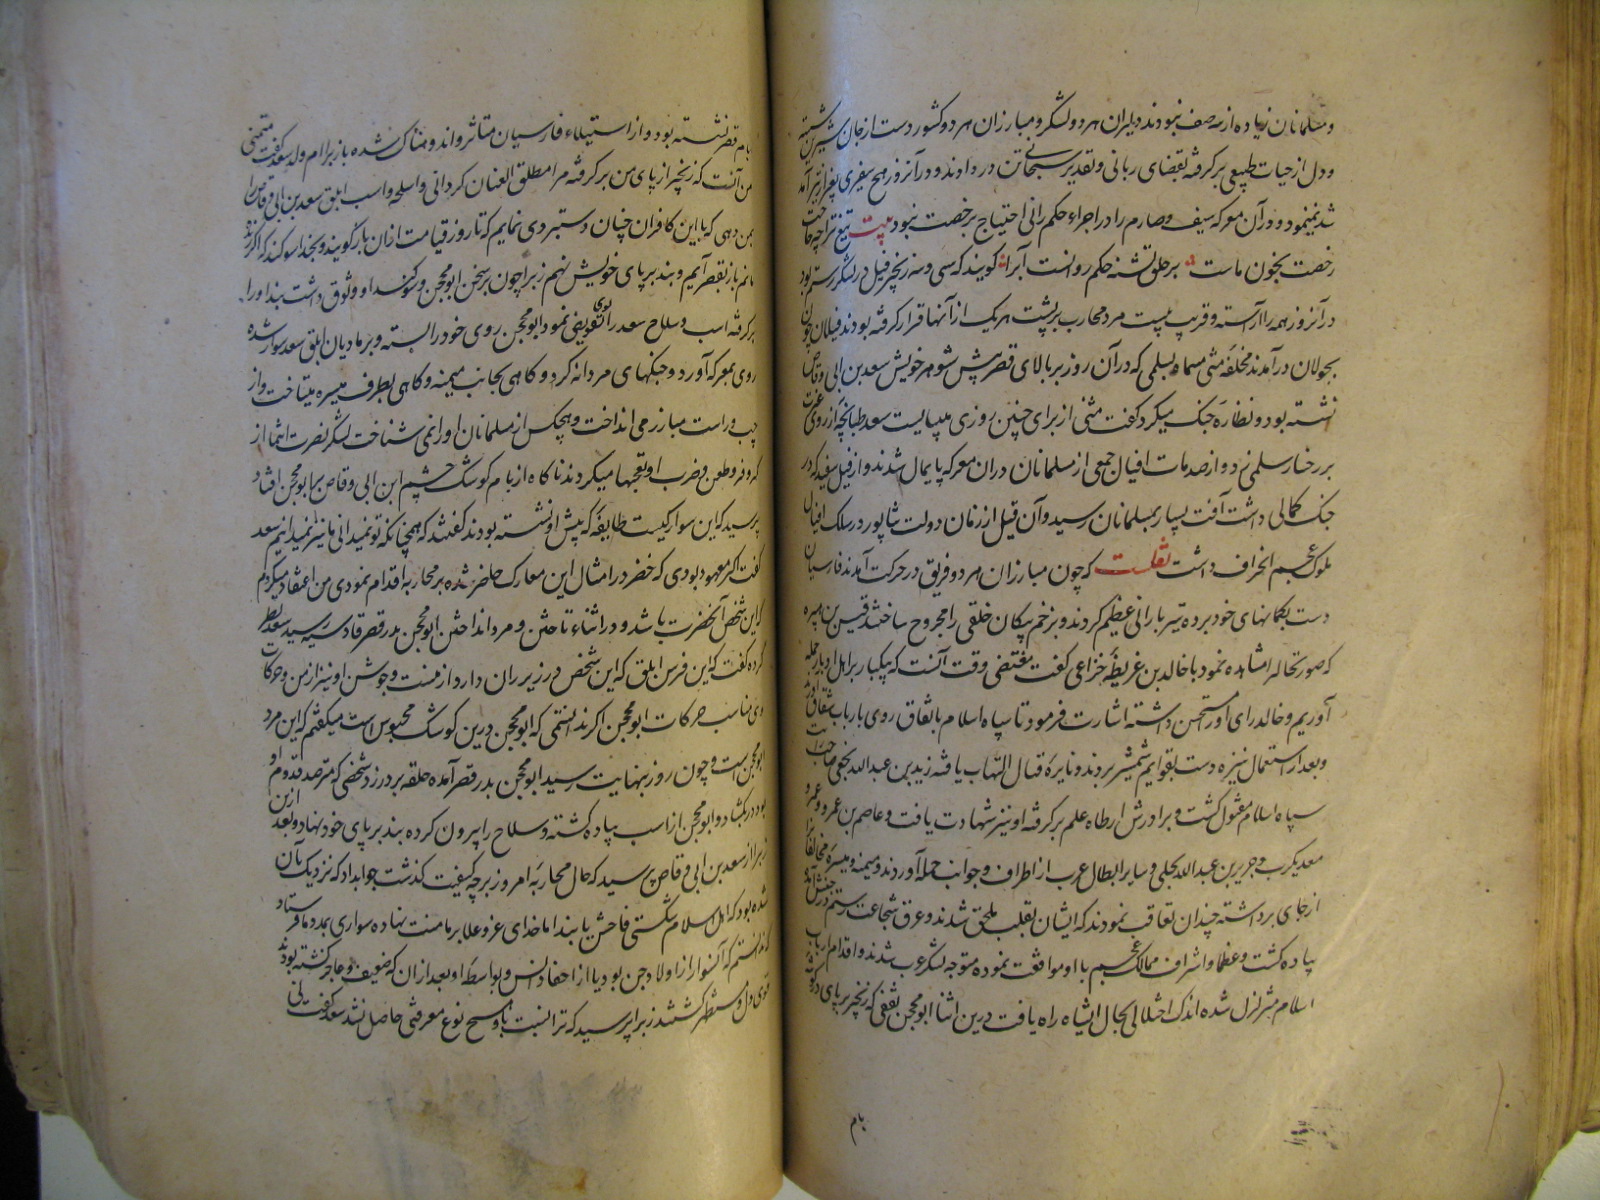 و مسلمانان زیاده از سه صف نبودند دلیران هر دو لشکر و مبارزان هر دو کشور دست از جان شیرین شسته
و دل از حیات طبیعی برکرفته بقضای ربانی و تقدیر سبحانی تن در دادند و در آنروز رمح سفیری
شد نمینمود و در آن معرکه سیف و صارم را در اجراء حکم رانی احتیاج برخصت نبود بیت تیغ ترا چه حاجت
رخصت بخون ماست بر حلق تشنه حکم روانست آبرا کویند که سی و سه زنجیر فیل در لشکر رستم بود
در آنروز همه را آراسته و قریب بیست مرد محارب بر پشت هر یک از آنها قرار کرفته بودند فیلان چون
بجولان در آمدند مخلفه مثنی مسماه بسلمی که در آن روز بر بالای قصر پیش شوهر خویش سعد بن ابی وقاص
نشسته بود و نظاره جنک میکرد کفت مثنی از برای چنین روزی میبایست سعد طبانچه از روی غیرت
بر رخسار سلمی زد و از صدمات افیال جمعی از مسلمانان در ان معرکه پایمال شدند و از فیل سفید که در
جنک کمالی داشت آفت بسیار بمسلمانان رسید و آن فیل از زمان دولت شاپور در سلک افیال
ملوک عجم انخراف داشت نقلست که چون مبارزان هر دو فریق در حرکت آمدند فارسیان
دست بکمانهای خود برده تیر بارانی عظیم کردند و بزخم پیکان خلقی را مجروح ساختند قیس بن هبیره
که صورتحال را مشاهده نمود با خالد بن عریظه خزاعی کفت مقتضی وقت آنست که بیکبار بر اهل ادبار حمله
آوریم و خالد رای او را مستحسن داشته اشارت فرمود تا سپاه اسلام باتفاق روی بارباب شقاق آورند
و بعد از استعمال نیزه دست بقوایم شمشیر بردند و نایره قتال التهاب یافته زید بن عبد الله نخعی صاحب رایت
سپاه اسلام مقتول کشت و برادرش ارطاه علم برکرفته او نیز شهادت یافت و عاصم بن عمرو و عمرو
معدیکرب و جریر بن عبد الله بجلی و سایر ابطال عرب از اطراف و جوانب حمله آوردند و میمنه و میسره مخالفانرا
از جای برداشته چندان تعاقب نمودند که ایشان بقلب ملحق شدند و عرق شجاعت رستم در جنبش آمده
پیاده کشت و عظما و اشراف ممالک عجم با او موافقت نموده متوجه لشکر عرب شدند و اقدام ارباب
اسلام متزلزل شده اندک اختلالی بحال ایشان راه یافت درین اثنا ابو محجن ثقفی که زنجیر بر پای در کوشه
بام
بام قصر نشسته بود و از استیلاء فارسیان متاثر و اندوهناک شده باز برا ام ولد سعد کفت متمنی
من آنست که زنجیر از پای من بر کرفته مرا مطلق العنان کردانی و اسلحه و اسب ابلق سعد بن ابی وقاص را
بمن دهی که با این کافران چنان دستبردی نمایم که تا روز قیامت از ان باز کویند و بخدا سوکند که اکر زنده
مانم باز بقصر آیم و بند بر پای خویش نهم زبرا چون بر سخن ابو محجن و سوکند او وثوق داشت بند او را
بر کرفته اسب و سلاح سعد را بوی تفویض نمود ابو محجن روی خود را بسته و بر مادیان ابلق سعد سوار شده
روی بمعرکه آورد و جنکهای مردانه کرد و کاهی بجانب میمنه و کاهی بطرف میسره میتاخت و از
چپ و راست مبارز می انداخت و هیچکس از مسلمانان او را نمی شناخت لشکر نصرت انتما از
کر و فر و طعن و ضرب او تعجبها میکردند ناکاه از بام کوشک چشم ابن ابی وقاص بر ابو محجن افتاد
پرسید که این سوار کیست طایفه که پیش او نشسته بودند کفتند که همچنانکه تو نمیدانی ما نیز نمیدانیم سعد
کفت اکر معهود بودی که خضر در امثال این معارک حاضر شده بر محاربه اقدام نمودی من اعتقاد میکردم
که این شخص آنحضرت باشد و در اثناء تاختن و مرد انداختن ابو محجن بدر قصر قادسیه رسید سعد
کرده کفت که این فرس ابلق که این شخص در زیر ران دارد از منست و جوشن او نیز از من و حرکات
وی مناسب حرکات ابو محجن اکر ندانستمی که ابو محجن درین کوشک محبوس است میکفتم که این مرد
ابو محجن است و چون روز بنهایت رسید ابو محجن بدر قصر آمده حلقه بر در زد شخصی که مترصد قدوم او
بود در بکشاد و ابو محجن از اسب پیاده کشته و سلاح را بیرون کرده بند بر پای خود نهاد و بعد ازین
زبرا از سعد بن ابی وقاص پرسید که حال محاربه امروز بر چه کیفیت کذشت جواب داد که نزدیک بآن
شده بود که اهل اسلام شکستی فاحش یابند اما خدای عز و علا بر ما منت نهاده سواری بمدد ما فرستاد
که ندانستم که آنسوار از اولاد جن بود یا از احفاد انس و بواسطه او بعد از ان که ضعیف و عاجز کشته بودند
قوی دل و مستظهر کشتند زبرا پرسید که ترا نسبت باو هیچ نوع معرفتی حاصل نشد سعد کفت نی